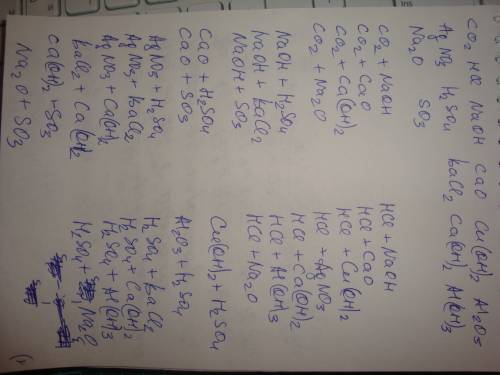 CO₂ HCl NaOH CaO Cu(OH)₂ Al₂O₃
AgNO₃ H₂SO₄ BaCl₂ Ca(OH)₂ Al(OH)₃
Na₂O SO₃
CO₂ + NaOH
CO₂ + CaO
CO₂ + Ca(OH)₂
CO₂ + Na₂O
NaOH + H₂SO₄
NaOH + BaCl₂
NaOH + SO₃
CaO + H₂SO₄
CaO + SO₃
AgNO₃ + H₂SO₄
AgNO₃ + BaCl₂
AgNO₃ + Ca(OH)₂
BaCl₂ + Ca(OH)₂
Ca(OH)₂ + SO₃
Na₂O + SO₃
HCl + NaOH
HCl + CaO
HCl + Cu(OH)₂
HCl + AgNO₃
HCl + Ca(OH)₂
HCl + Al(OH)₃
HCl + Na₂O
Cu(OH)₂ + H₂SO₄
Al₂O₃ + H₂SO₄
H₂SO₄ + BaCl₂
H₂SO₄ + Ca(OH)₂
H₂SO₄ + Al(OH)₃
H₂SO₄ + Na₂O
Ins